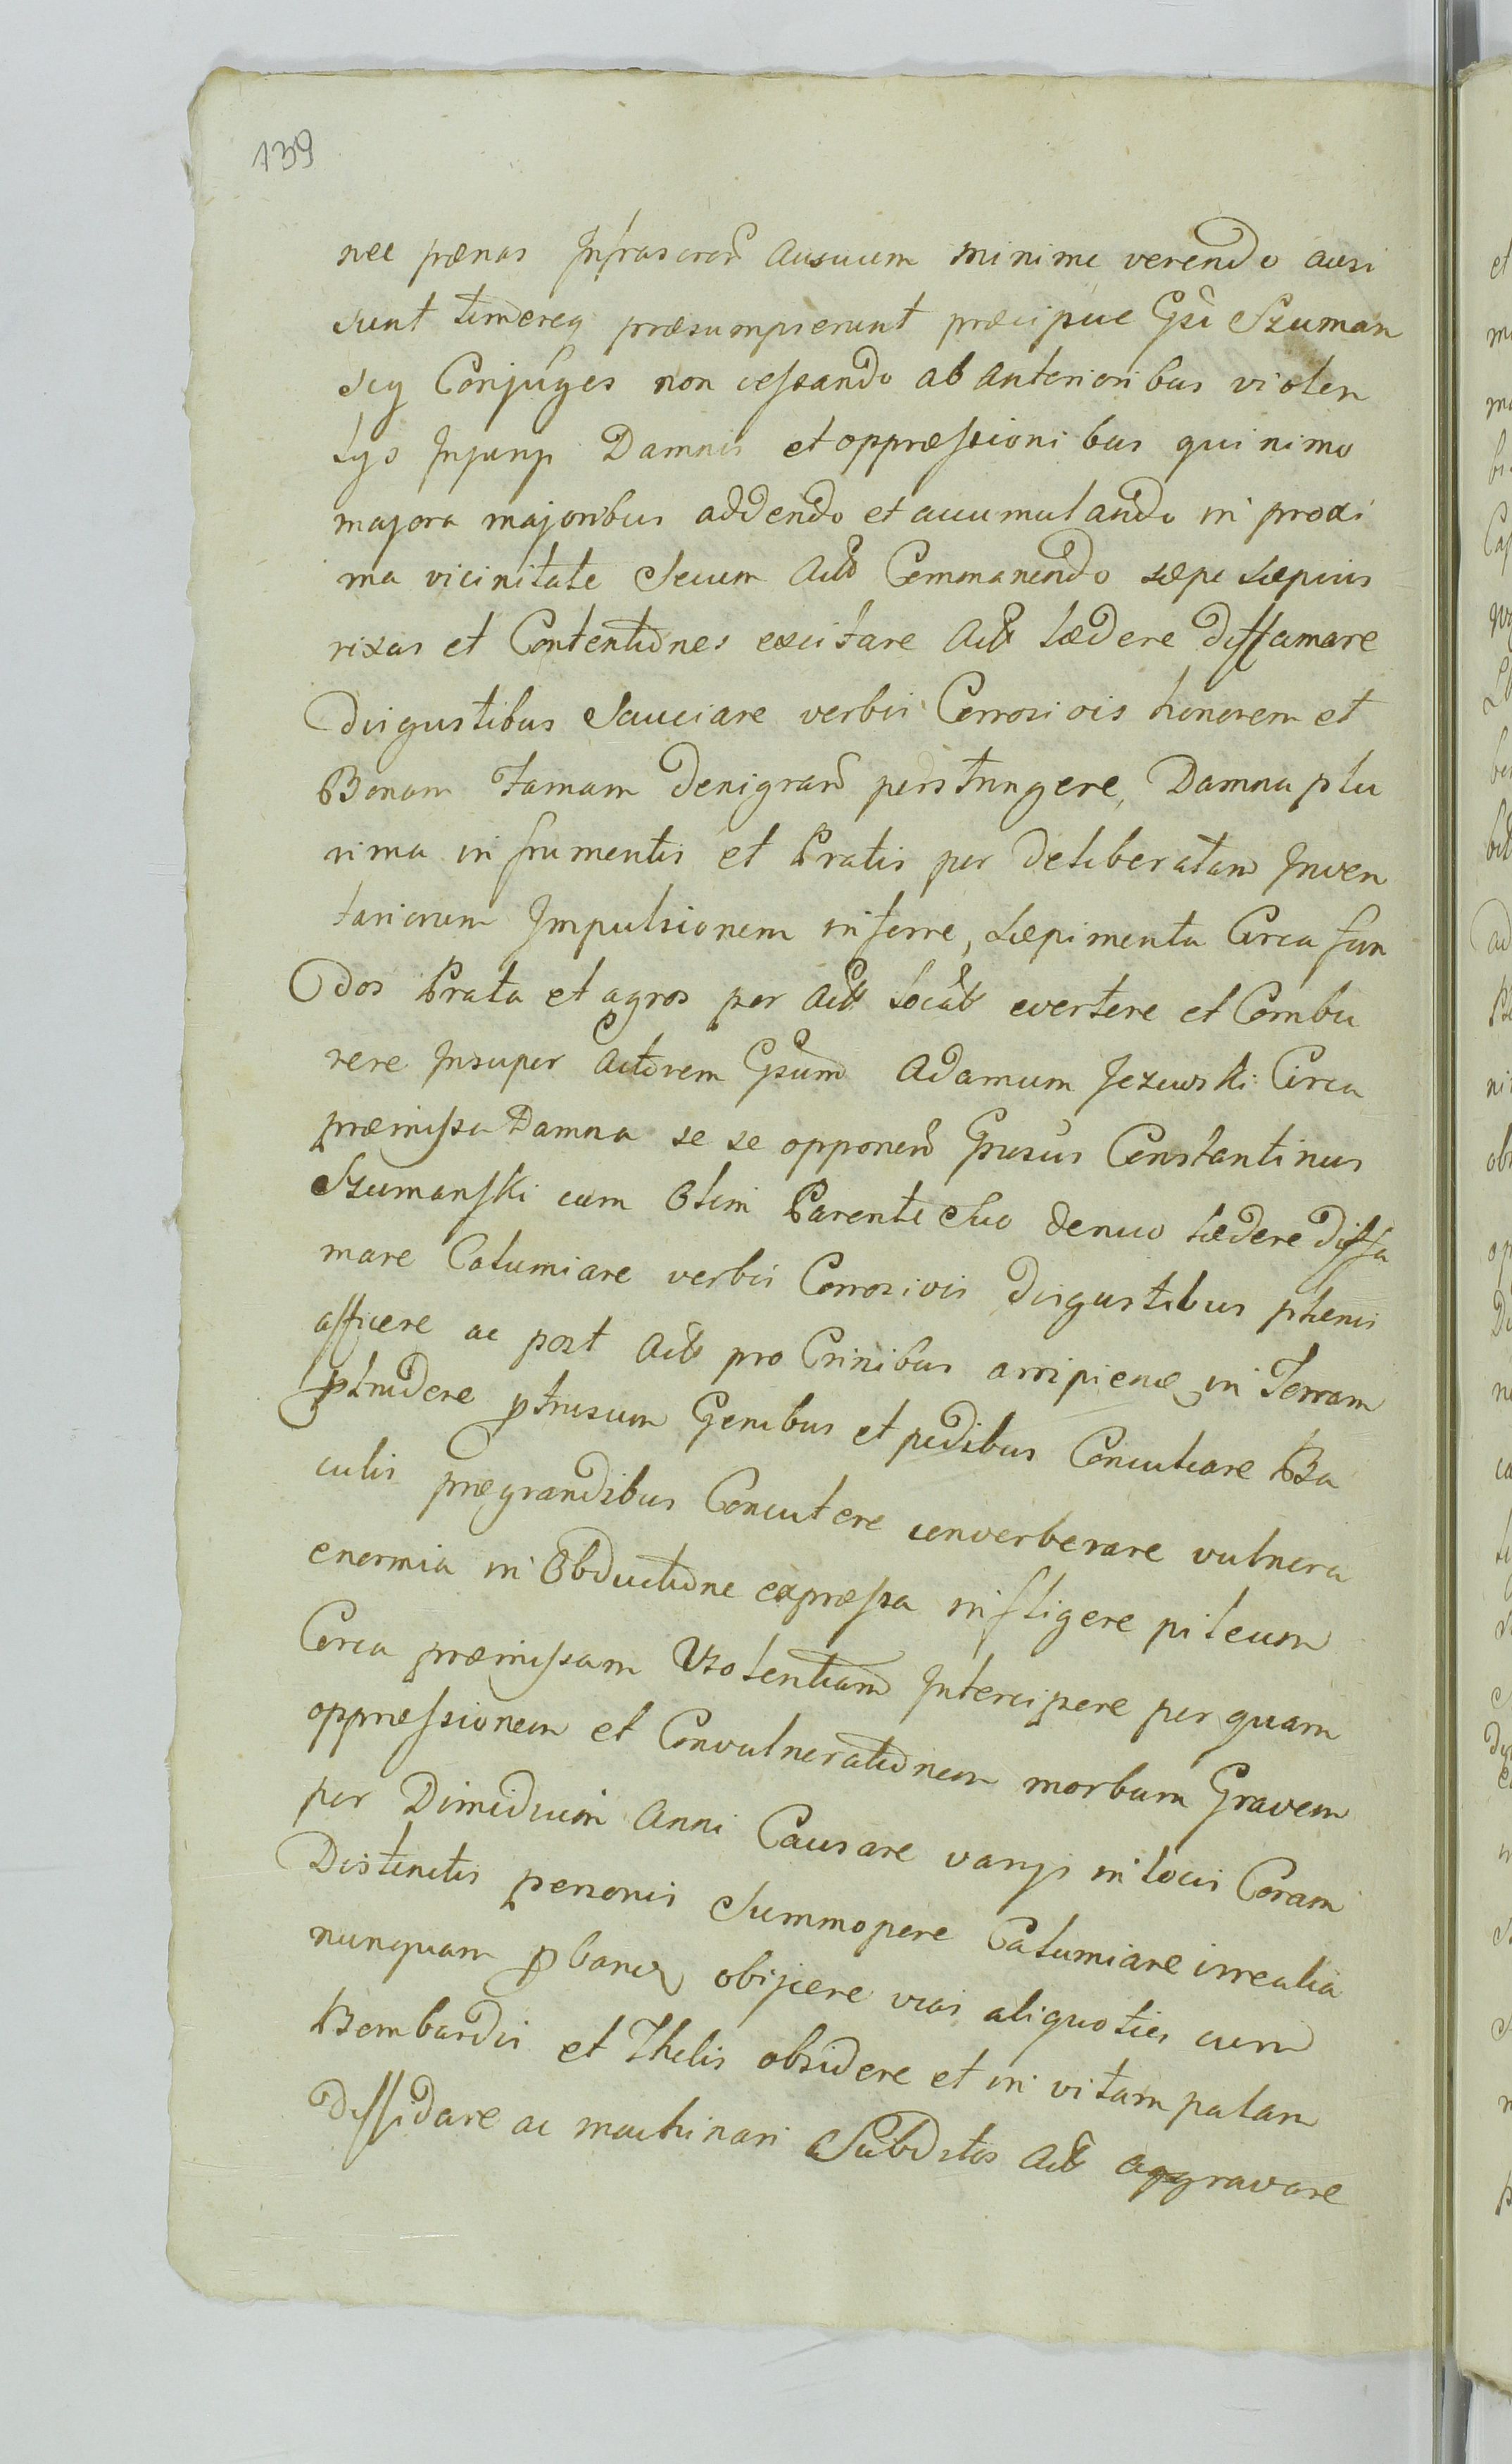 139
nec pænas Infrascron̄ Ausuum minime verendo ausi
sunt timereq præsumpserunt præcipue Gsi Szuman
scy Conjuges non cessando ab anterioribus violen
tys Injurijs Damnis et oppræssionibus quinimo
majora majoribus addendo et accumulando in proxi
ma vicinitate Secum Actō Commanendo sæpe sæpius
rixas et Contentiones excitare Actō Lædere diffamare
Disgustibus Sauciare verbis Corrosivis honorem et
Bonam Famam Denigran̄ perstringere, Damna plu
rima in frumentis et Pratis per deliberatam Inven
tariorum Impulsionem inferre, Sæpimenta Circa fun
Dos Prata et agros per Actō locatō evertere et Combu
rere Insuper Actorem Gsum Adamum Jezewski Circa
præmissa Damna se se opponen̄ Gnsus Constantinus
Szumanski cum Olim Parente Suo denuo Lædere diffa
mare Calumiare verbis Corrosivis Disgustibus plenis
afficere ac post Actō pro Crinibus arripiene in Terram
ptrudere ptrusum Genibus et pedibus Conculcare Ba
culis prægrandibus Concutere converberare vulnera
enormia in Obductione expræssa infligere pileum
Circa præmissam Violentiam Intercipere per quam
oppræssionem et Convulnerationem morbum Gravem
per Dimidium Anni Causare varijs in locis Coram
Distinctis personis Summopere Calumiare irrealia
nunquam pbanꝫ objicere vias aliquoties cum
Bombardis et Thelis obsidere et in vitam palam
diffidare ac machinari Subditos Actō aggravare